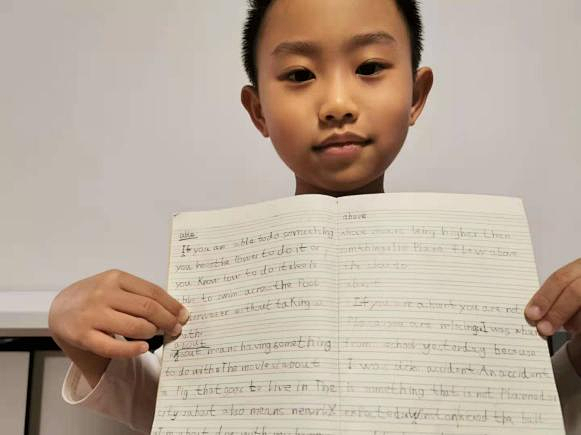 able
If you are able to do something
you have the Power to do it or
you know how to do it she is
able to swim across the Pool
underwater without taking a
about
about means having something
to do with The movie is about
a Pig that goes to live in The
city about also means
above
above means being higher than
something The Plane flew above
the
If you are absent you are not
you are missing I was absent
from school yesterday because
I was sick accident An accident
is something that is not Planned or
expected